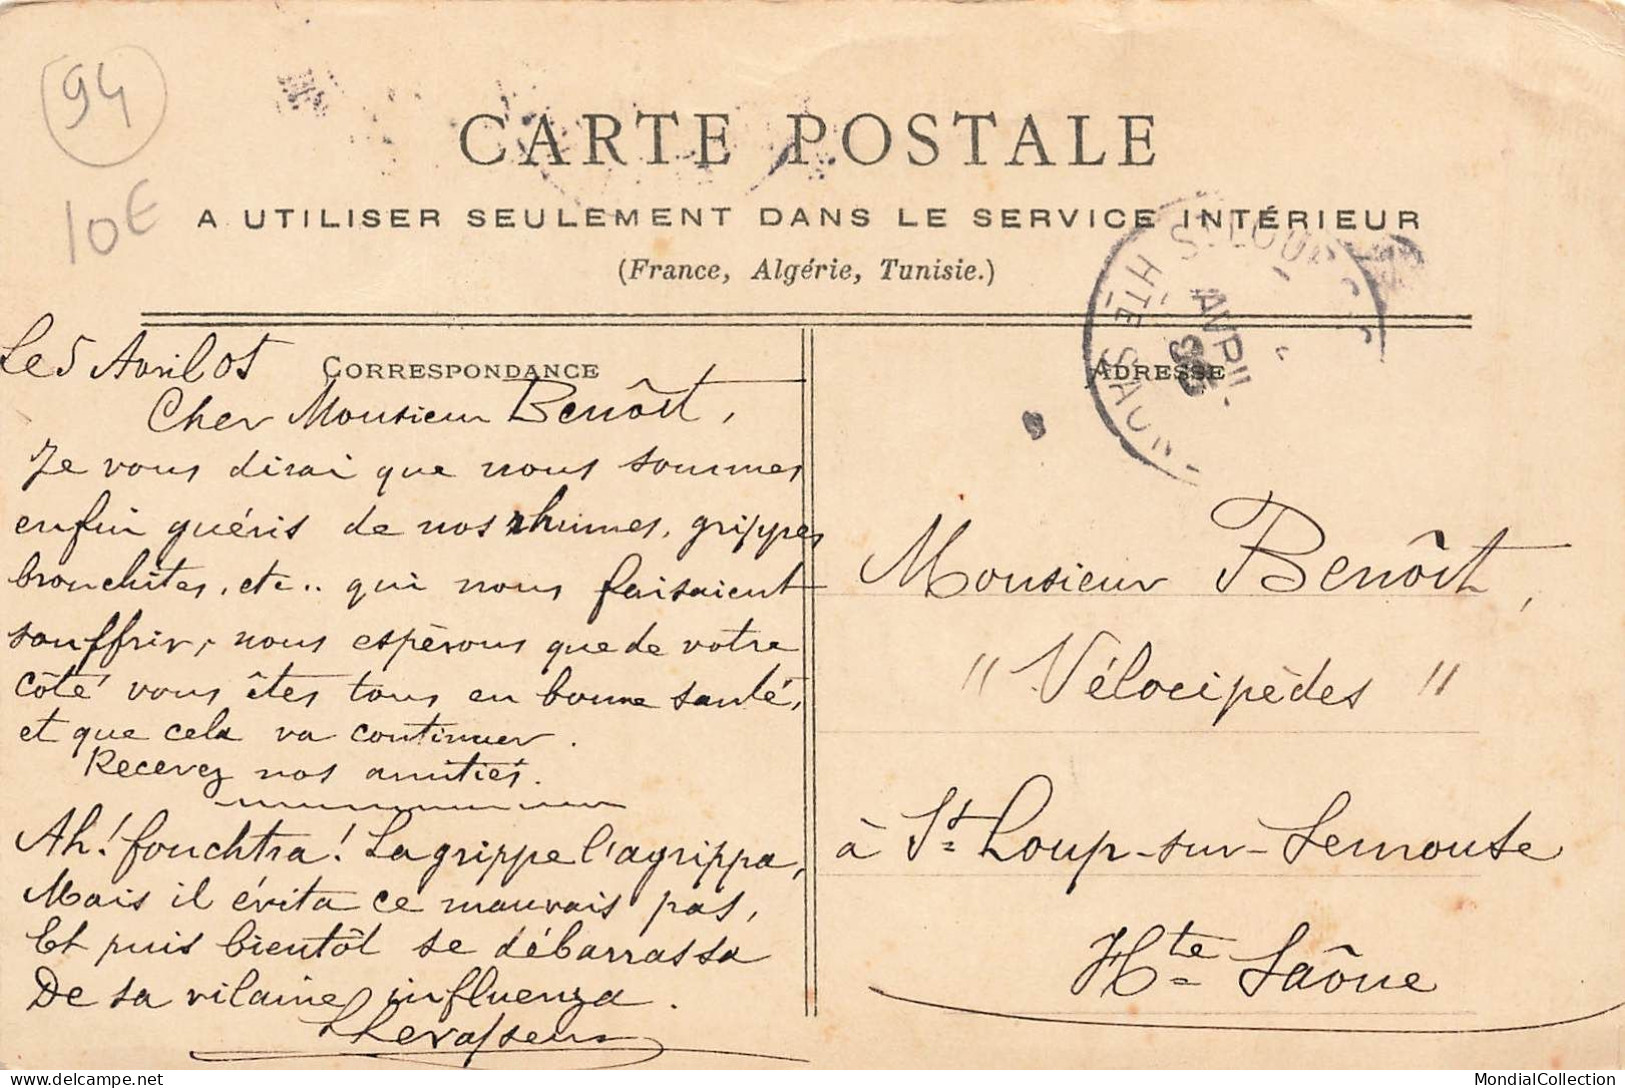 94
10€
CARTE POSTALE
A UTILISER SEULEMENT DANS LE SERVICE INTÉRIEUR
(France, Algérie, Tunisie.)
CORRESPONDANCE
Le 5 Avril 05
Cher Monsieur Benôit,
Je vous dirai que nous sommes
enfin guéris de nos rhumes, grippes
bronchites, etc.. qui nous faisaient
souffrir, nous espérons que de votre
côté vous êtes tous en bonne santé,
et que cela va continuer.
Recevez nos amitiés.
Ah! fouchtra! La grippe l'agrippa,
Mais il évita ce mauvais pas,
Et puis bientôt se débarrassa
De sa vilaine influenza.
ADRESSE
HTE SAÔNE
AVRIL
Monsieur Benôit,
"Vélocipèdes"
à St Loup-sur-Semouse
Hte Saône
MondialCollection